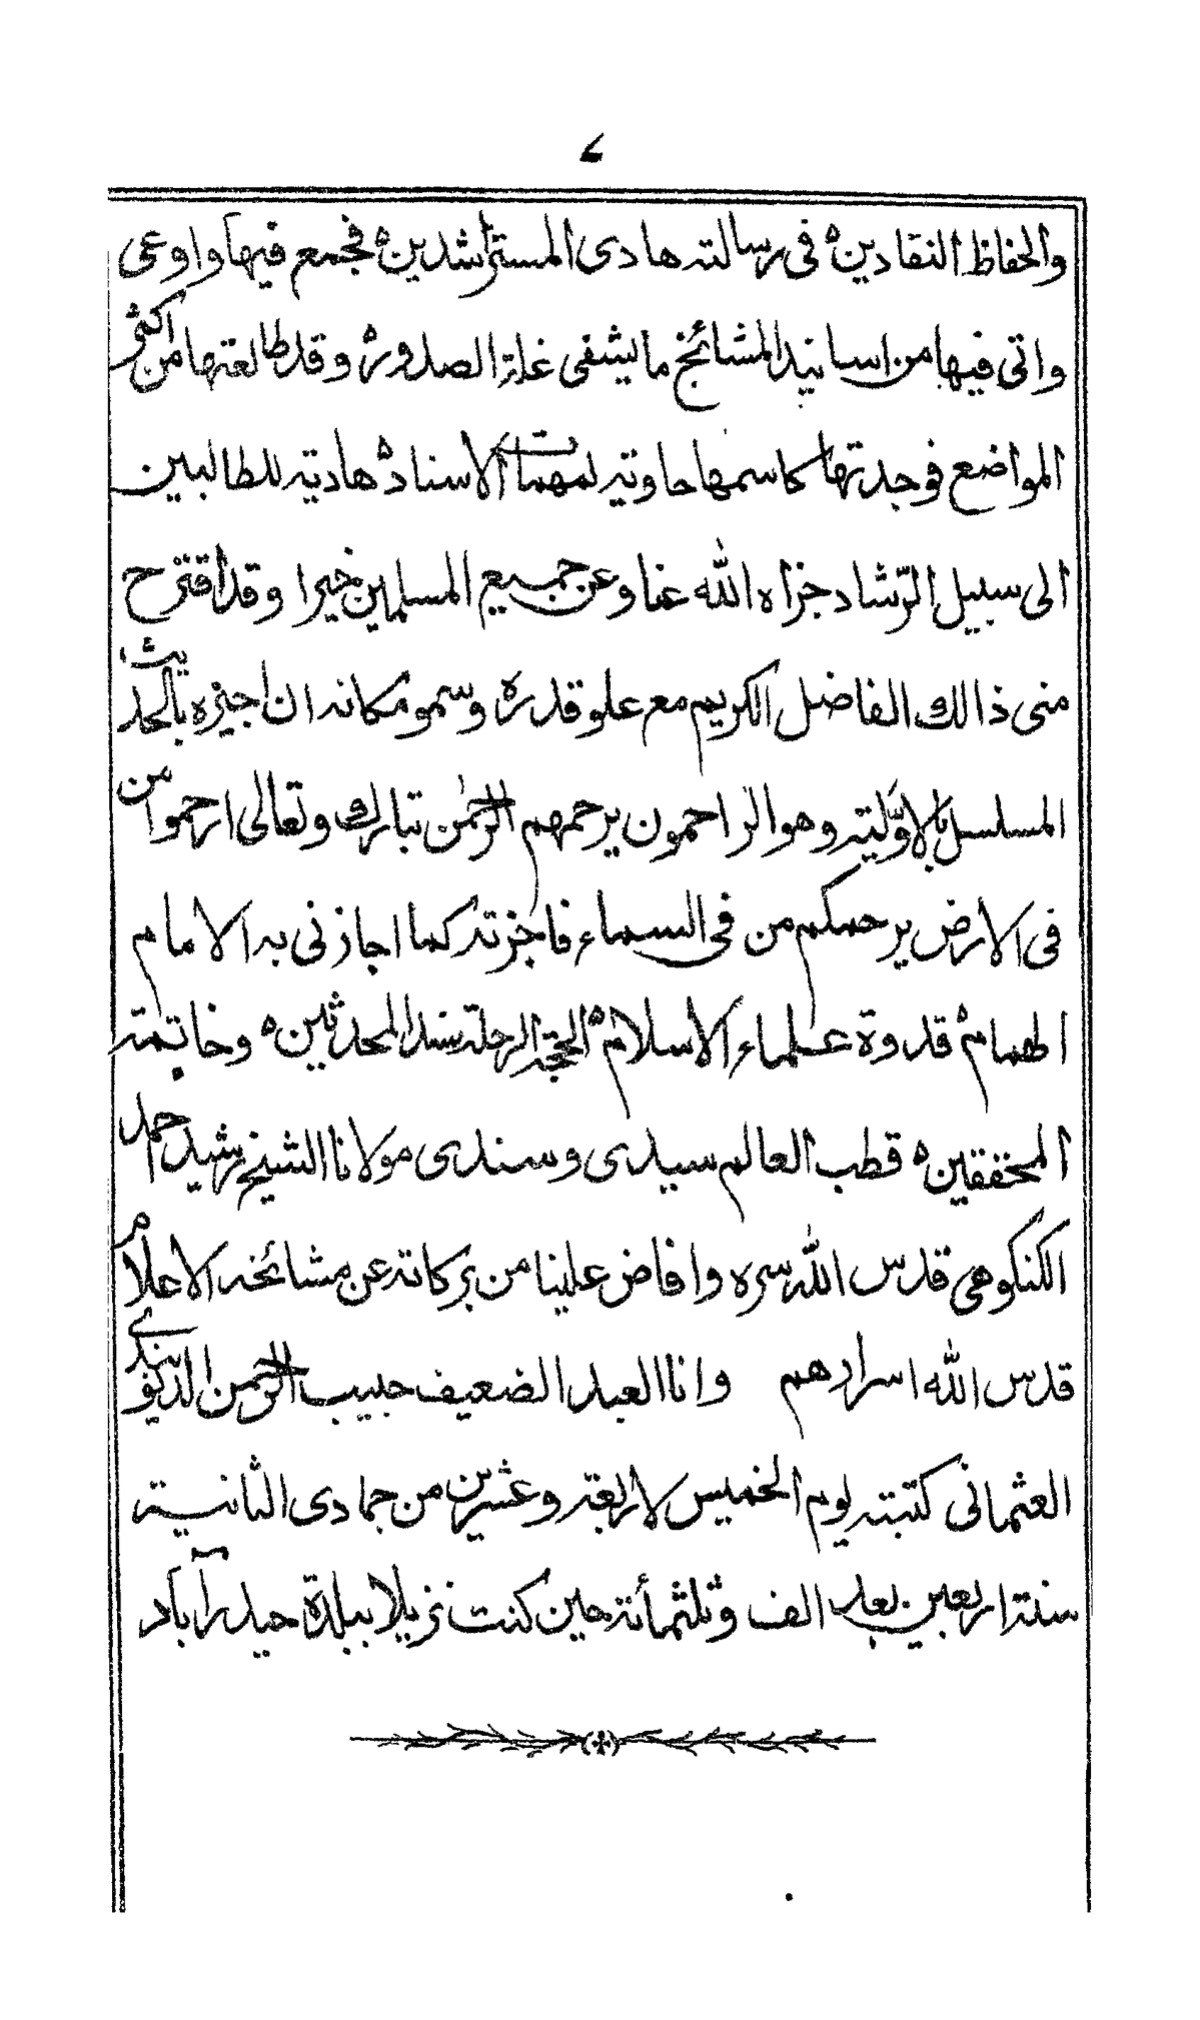 ۷
والحفاظ النقادين ه فى رسالته هادى المسترشدين ه فجمع فيها واوعى
واتى فيها من اسانيد المشائخ ما يشفى غلة الصدور ه وقد طالعتها من اكثر
المواضع فوجدتها كاسمها حاوية لمهمات الاسناد ه هادية للطالبين
الى سبيل الرّشاد جزاه الله عنا وعن جميع المسلمين خيرا وقد اقترح
منى ذالك الفاضل الكريم مع علو قدره وسمو مكانه ان اجيزه بالحديث
المسلسل بالاوّلية وهو الراحمون يرحمهم الرحمٰن تبارك وتعالى ارحموا من
فى الارض يرحمكم من فى السماء فاجزته كما اجازنى به الامام
الهمام ه قدوة علماء الاسلام ه الحجة الرحلة سند المحدثين ه وخاتمة
المحققين ه قطب العالم سيدى وسندى مولانا الشيخ رشيد احمد
الكنكوهى قدس الله سره وافاض علينا من بركاته عن مشائخه الاعلام
قدس الله اسرارهم وانا العبد الضعيف حبيب الرحمن الديوبندي
العثمانى كتبته يوم الخميس لاربعة وعشرين من جمادى الثانية
سنة اربعين بعد الف وثلثمأئة حين كنت نزيلا ببلدة حيدرآباد